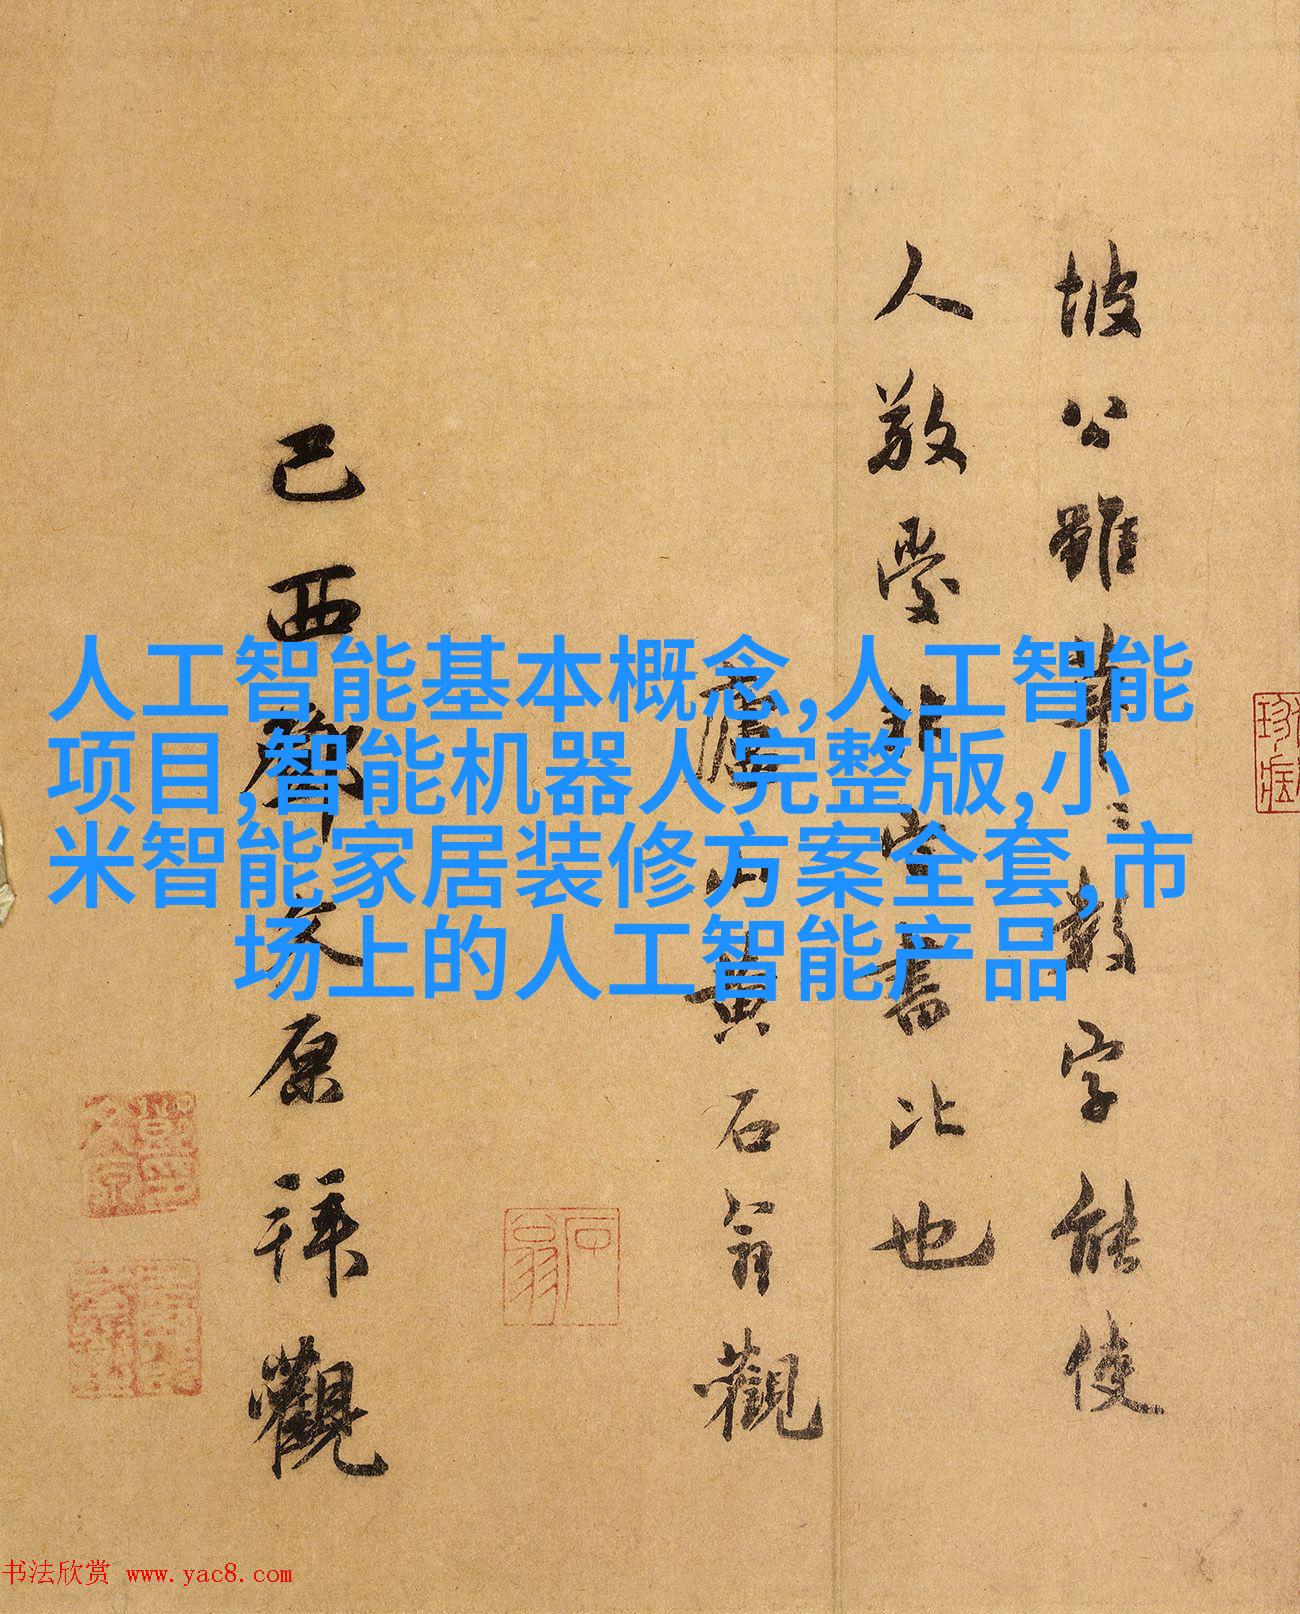 坡公雖草草數字能使
人敬愛
書比也
黄石翁觀
己酉
文原拜觀
石翁
人工智能基本概念,人工智能
项目,智能机器人完整版,小
米智能家居装修方案全套,市
场上的人工智能产品
书法欣赏 www.yac8.com